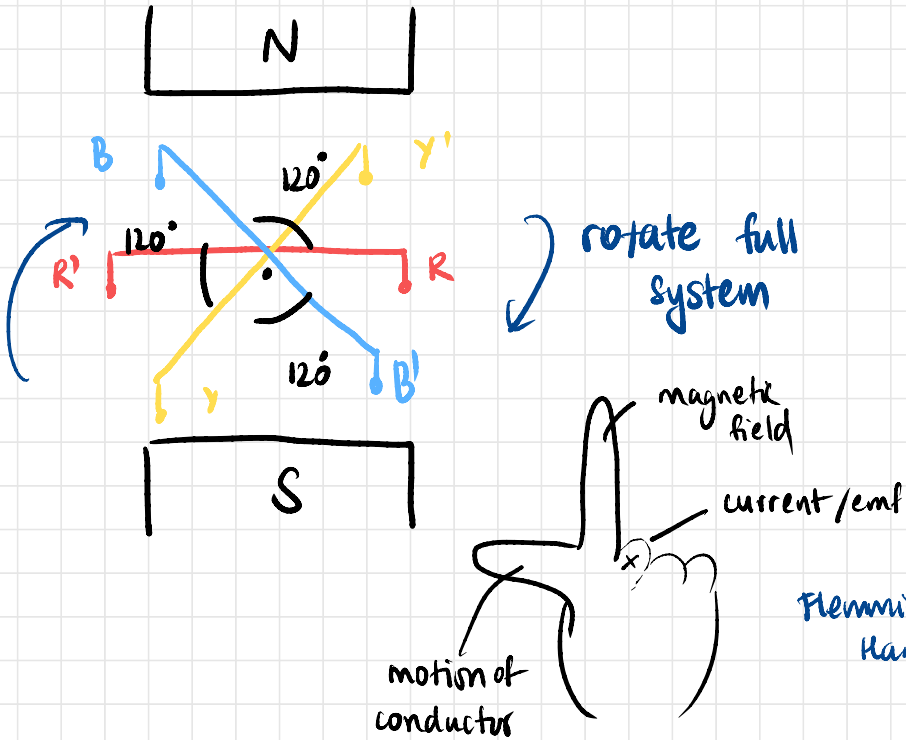 N
B
Y'
120°
120°
R'
R
rotate full
system
120°
B'
Y
S
magnetic
field
current/emf
x
Flemmi
Han
motion of
conductor